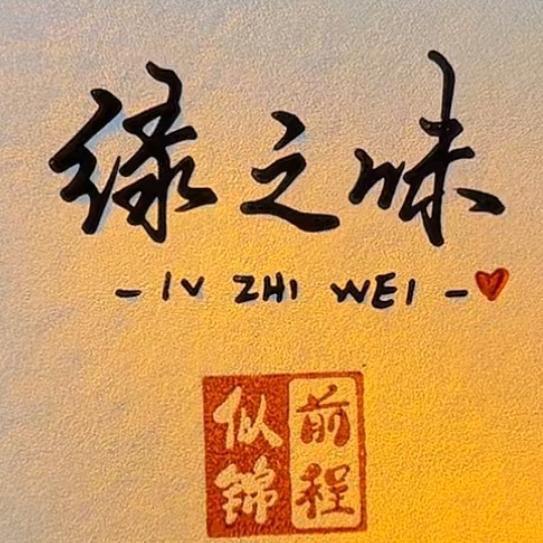 绿之味
- IV ZHI WEI -
前程
似锦